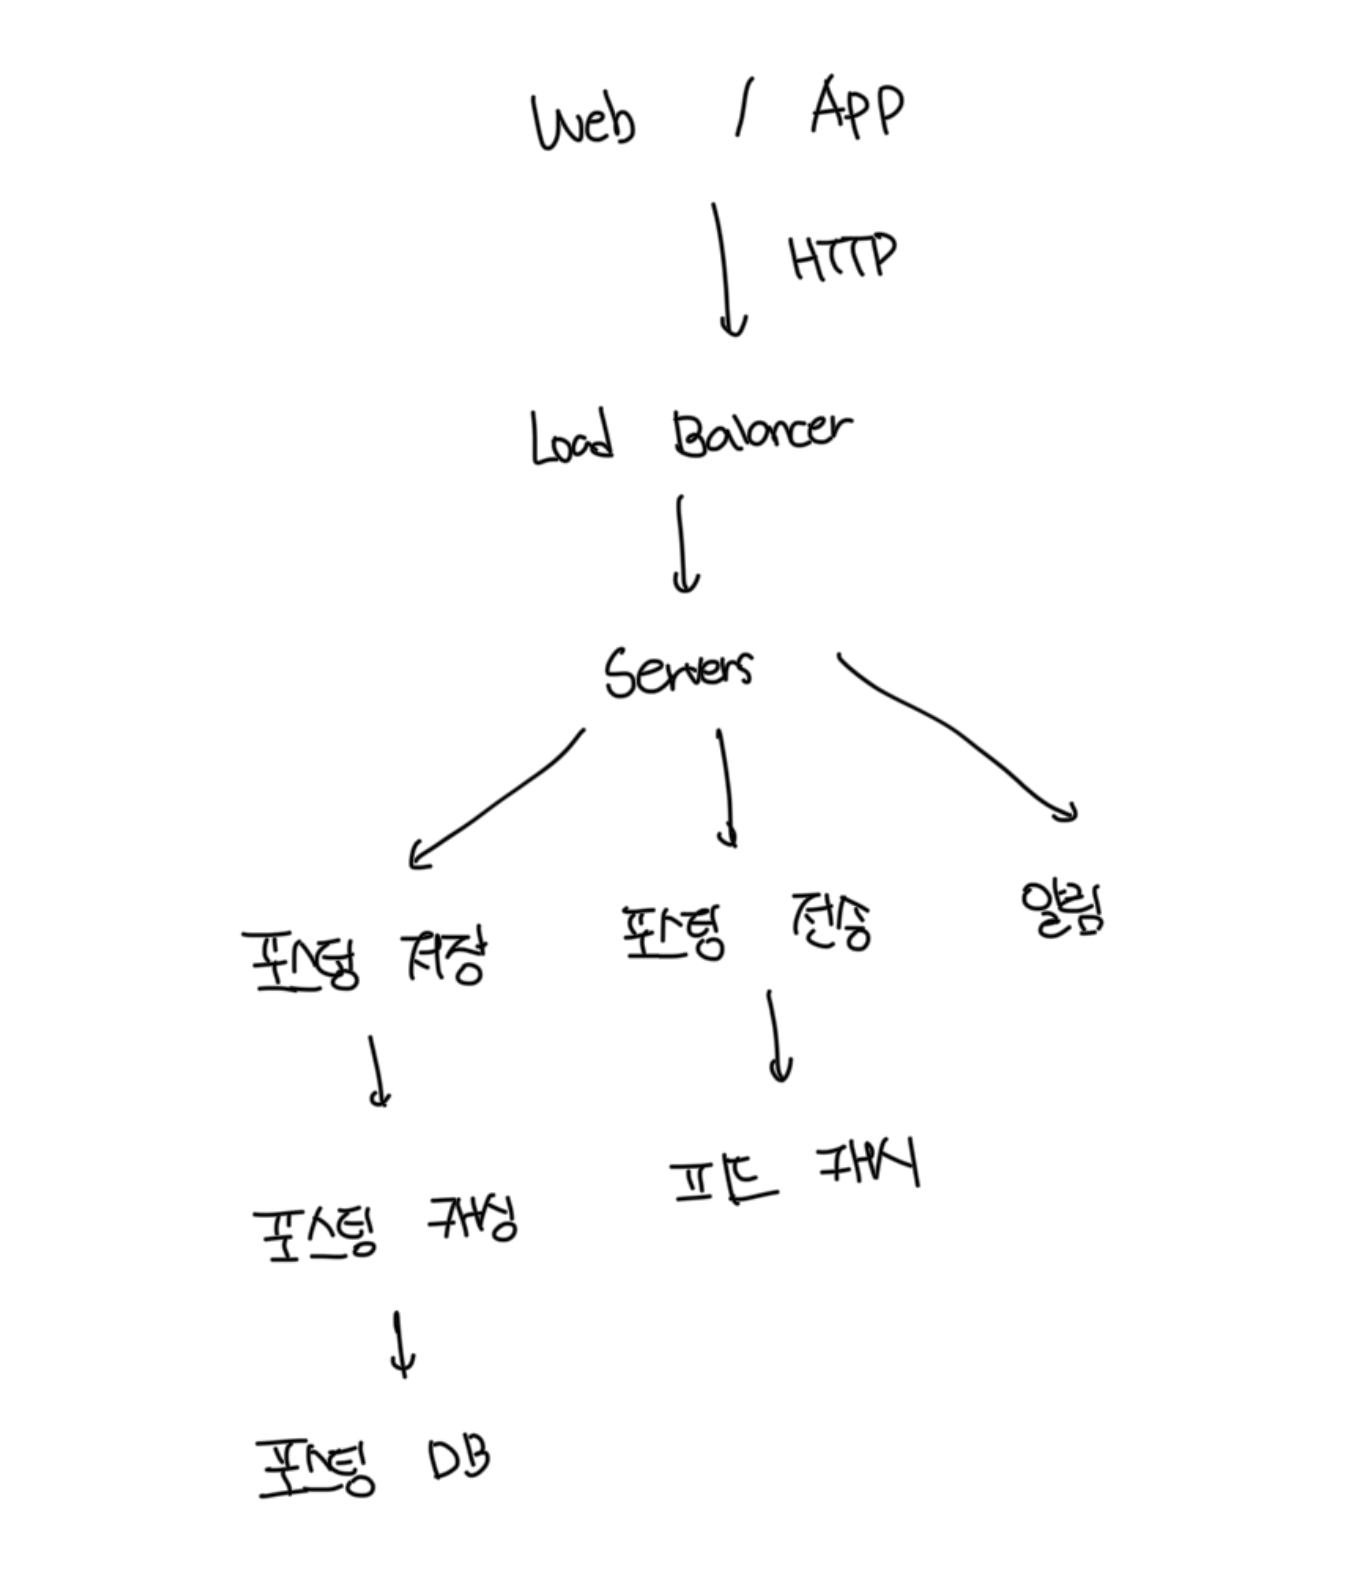 Web / App
HTTP
Load Balancer
Servers
포스팅 저장
포스팅 전송
알림
포스팅 캐싱
피드 캐시
포스팅 DB